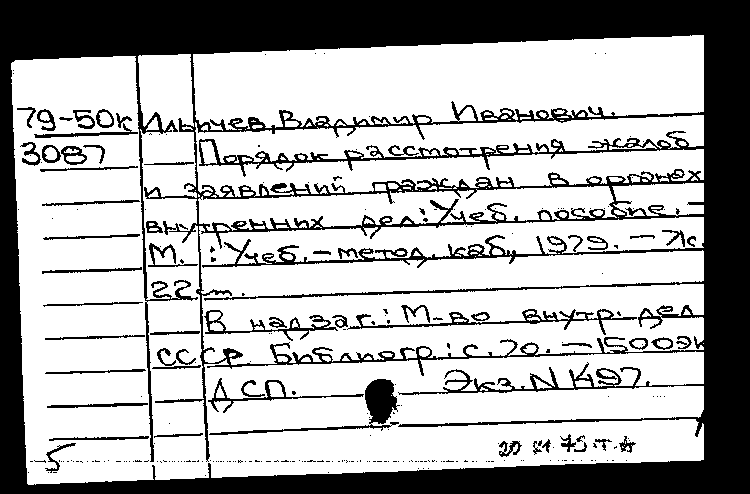 79-50к Ильичев, Владимир Иванович.
3087 Порядок рассмотрения жалоб
и заявлений граждан в органах
внутренних дел: Учеб. пособие. –
М. : Учеб.-метод. каб., 1979. – 71с.
22см.
В надзаг.: М-во внутр. дел
СССР. Библиогр.: с. 70. – 1500эк
ДСП. Экз. N 1497.
5